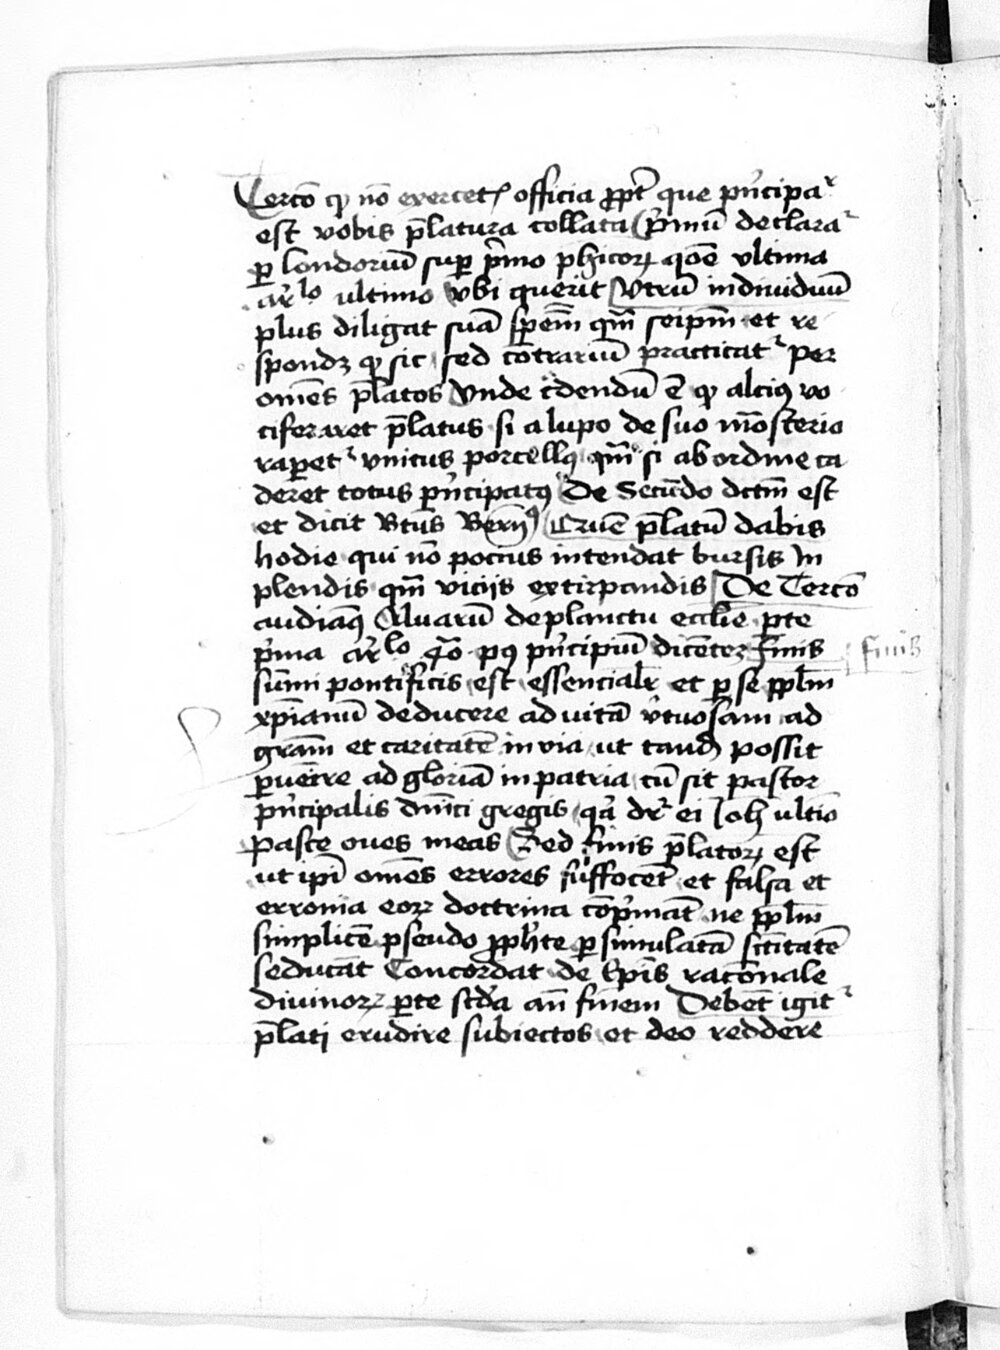 Tercō qꝫ nō exercet᷒ officia ꝓpt̄ que pͥncipar
est vobis p̄latura collata pͥmū declara᷒
ꝑ londoriū suꝑ pͥmo phicoꝝ qōe vltima
ar̄lo vltimo vbi querit Vtrū indiuiduū
plus diligat suā spēm qm̄ seipm̄ et re
spondꝫ qꝫ sic sed cōtrariū practicat᷒ per
omēs p̄latos Vnde c̄dendū ē qꝫ alciꝰ vo
ciferaret p̄latus si a lupo de suo mōsterio
raperet᷒ vnicus porcellꝰ qm̄ si ab ordine ca
deret totus pͥncipatꝰ De Secūdo dctm̄ est
et dicit Btūs Bern̄ꝰ Quē p̄latū dabis
hodie qui nō pocius intendat bursis In
plendis qm̄ viciis extirpandis De Tercō
audiamꝰ Aluarū de planctu ecclīe ꝑte
pͥma ar̄lo qͣo pꝰ pͥncipiū dicētē finis
finis
sūmi pontificis est essencialr̄ et ꝑ se pplm̄
xp̄ianū deducere ad vitā vͥtuosam ad
grām et caritatē in via ut tandē possit
ꝑuēire ad gloriā in patria cū sit pastor
pͥncipalis dnīci gregis qͣ dr᷒ ei Joh̄ ultīo
Pasce oues meas Sed finis p̄latoꝝ est
ut ipī omēs errores suffocēt et falsa et
erronia eoꝝ doctrina cōpͥmāt ne pplm̄
simplicē pseudo ꝓphete ꝑ simulatā sctītatē
seducāt Concordat de Ep̄is racōnale
diuinoꝝ ꝑte scd̄a an̄ finem Debēt igit᷒
p̄lati erudire subiectos et deo reddere